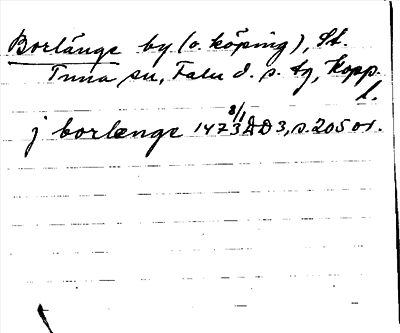 Borlänge by (o. köping), St.
Tuna sn, Falu d. s. tg, Kopp.
l.
j borlænge 1473 8/1 ÄD3, s. 205 or.